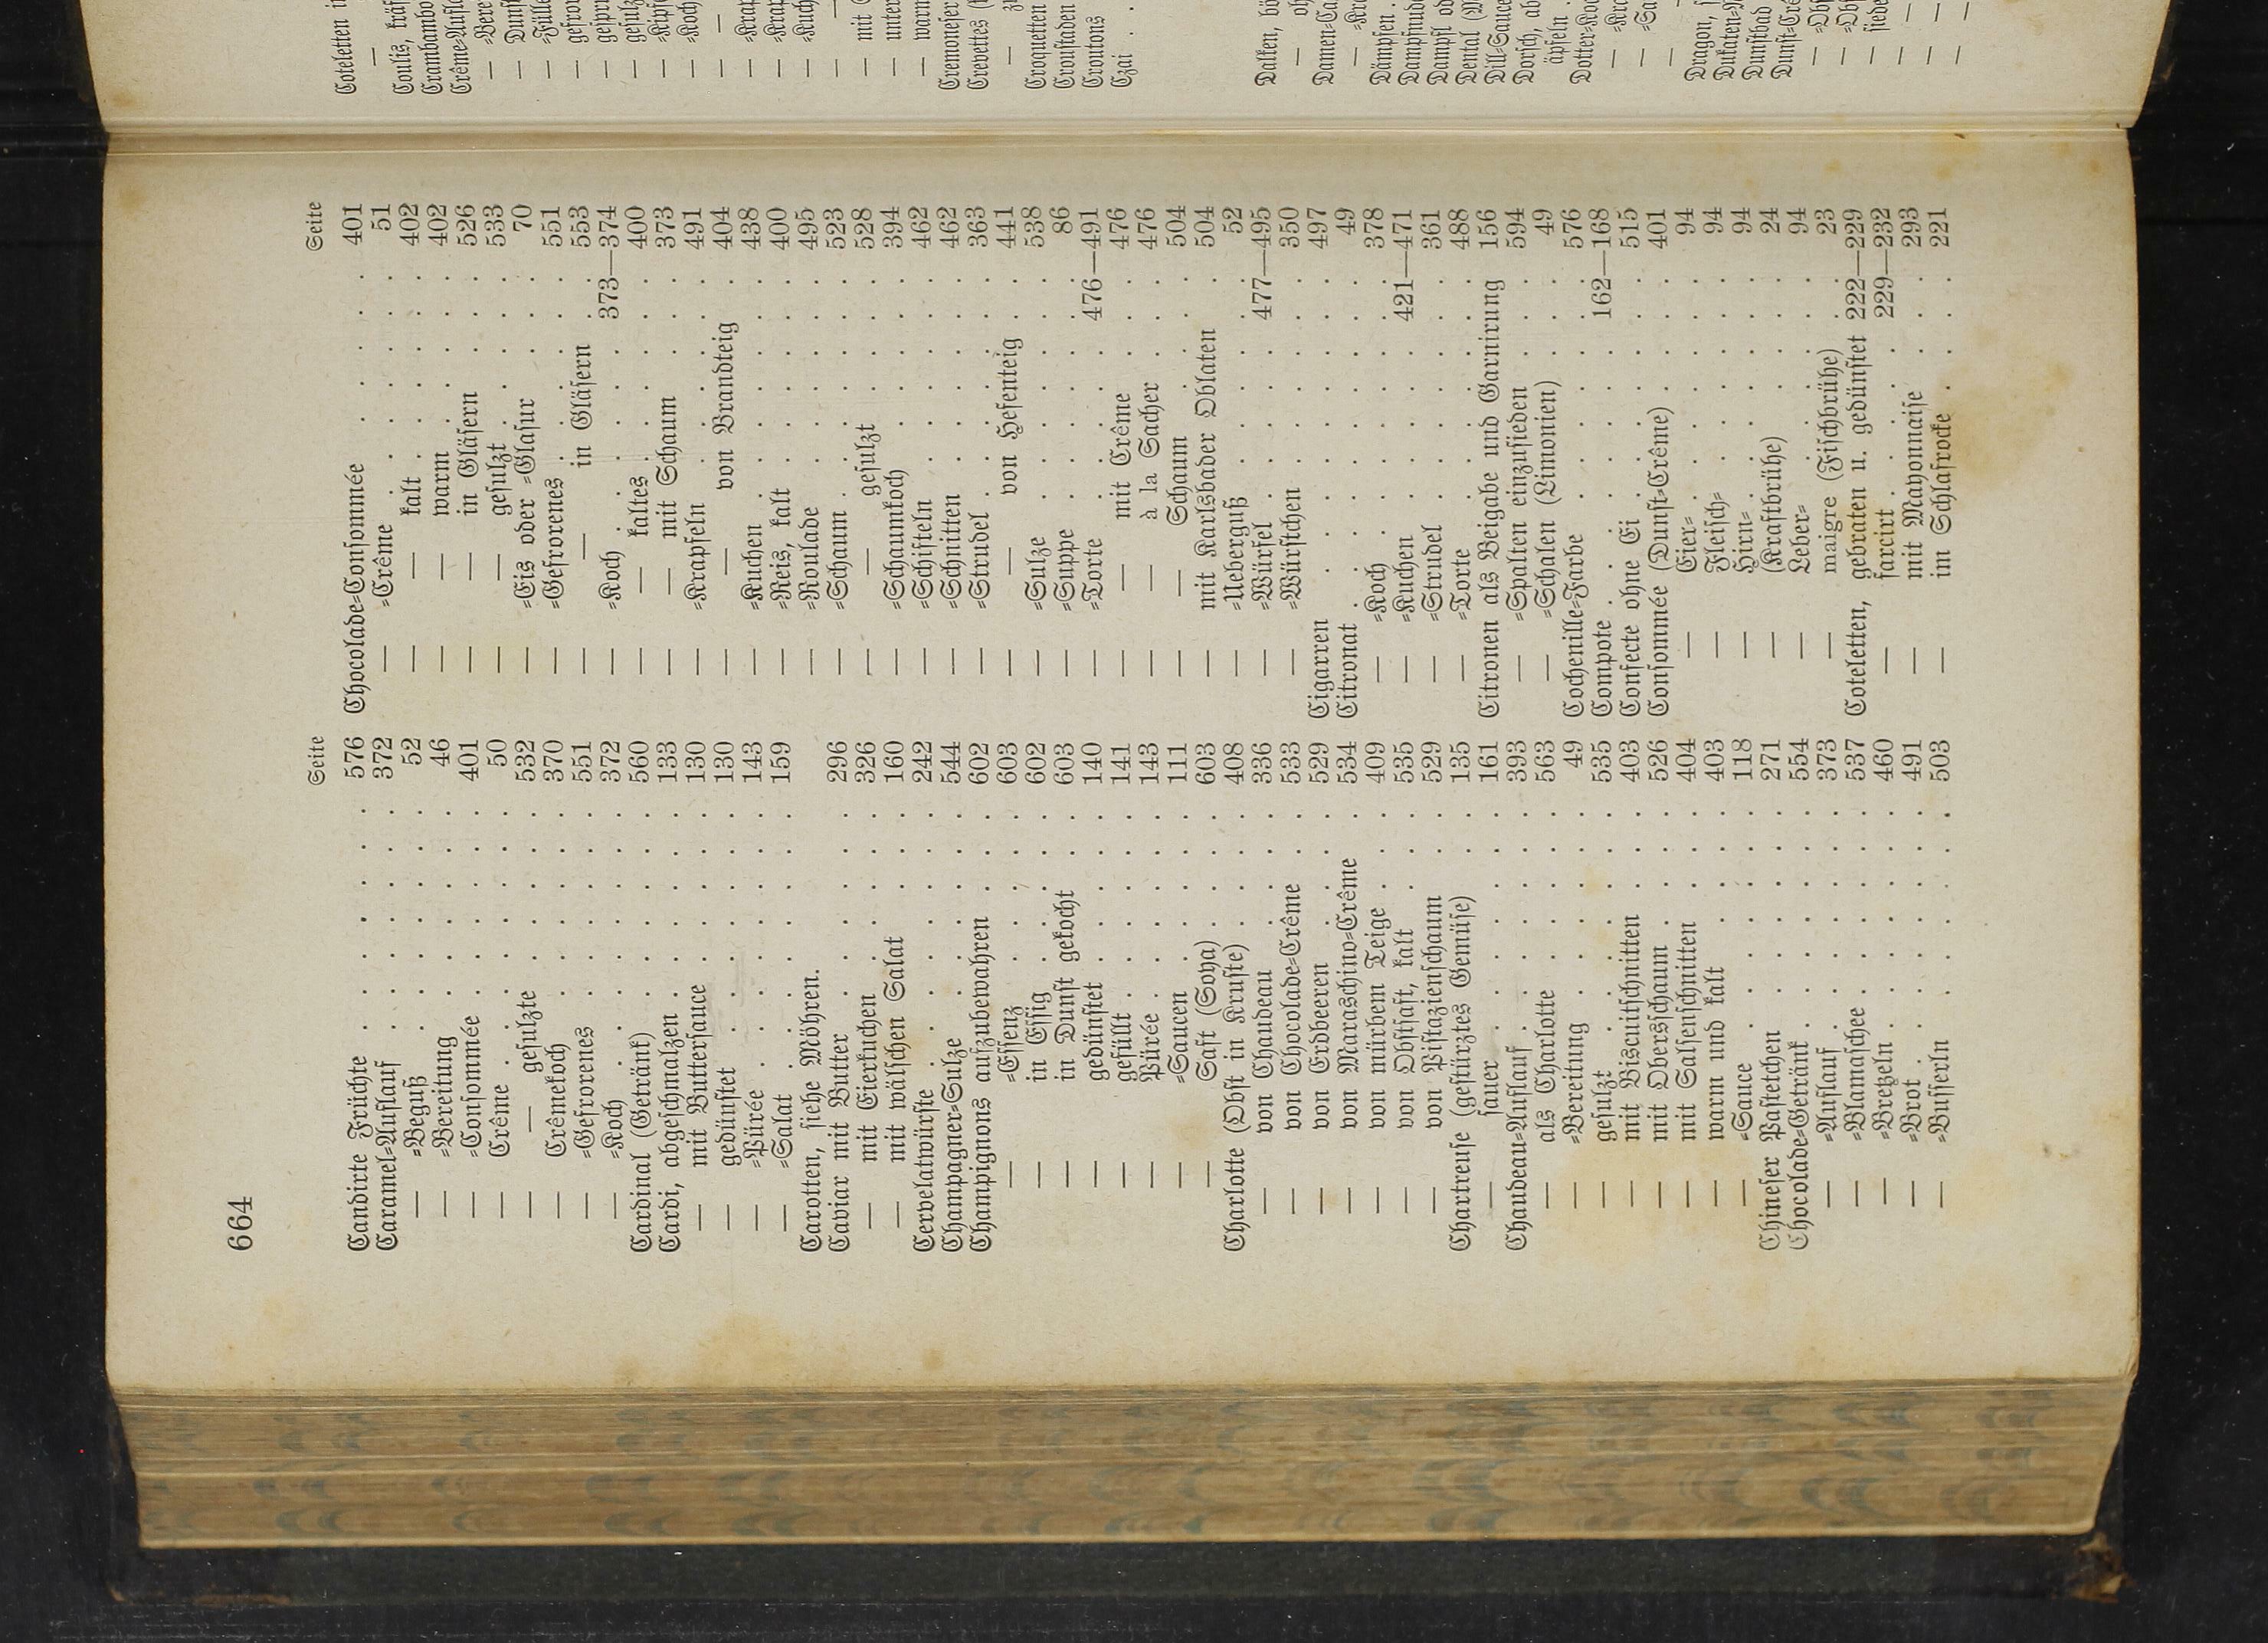 664
Seite
Candirte Früchte . . . . . . . 576
Caramel=Auflauf . . . . . . . 372
— =Beguß . . . . . . 52
— =Bereitung . . . . . . 46
— =Consommée . . . . . . 401
— Crême . . . . . . 50
— — gesulzte . . . . . 532
— Crêmekoch . . . . . . 370
— =Gefrorenes . . . . . 551
— =Koch . . . . . . 372
Cardinal (Getränk) . . . . . . 560
Cardi, abgeschmalzen . . . . . . 133
— mit Buttersauce . . . . . 130
— gedünstet . . . . . . 130
— =Pürée . . . . . . 143
— =Salat . . . . . . 159
Carotten, siehe Möhren.
Caviar mit Butter . . . . . . 296
— mit Eierkuchen . . . . . 326
— mit wälschen Salat . . . . 160
Cervelatwürste . . . . . . 242
Champagner=Sulze . . . . . . 544
Champignons aufzubewahren . . . . 602
— =Essenz . . . . . 603
— in Essig . . . . . 602
— in Dunst gekocht . . . 603
— gedünstet . . . . . 140
— gefüllt . . . . . 141
— Pürée . . . . . 143
— =Saucen . . . . . 111
— Saft (Soya) . . . . 603
Charlotte (Obst in Kruste) . . . . 408
— von Chaudeau . . . . . 336
— von Chocolade=Crême . . . 533
— von Erdbeeren . . . . . 529
— von Maraschino=Crême . . . 534
— von mürbem Teige . . . . 409
— von Obstsaft, kalt . . . . 535
— von Pistazienschaum . . . 529
Chartreuse (gestürztes Gemüse) . . . 135
— sauer . . . . . . 161
Chaudeau=Auflauf . . . . . . 393
— als Charlotte . . . . . 563
— =Bereitung . . . . . . 49
— gesulzt . . . . . . 535
— mit Biscuitschnitten . . . . 403
— mit Obersschaum . . . . 526
— mit Salsenschnitten . . . . 404
— warm und kalt . . . . . 403
— =Sauce . . . . . . 118
Chineser Pastetchen . . . . . . 271
Chocolade=Getränk . . . . . . 554
— =Auflauf . . . . . . 373
— =Blamaschee . . . . . 537
— =Bretzeln . . . . . . 460
— =Brot . . . . . . 491
— =Busserln . . . . . . 503
Seite
Chocolade=Consommée . . . . 401
— =Crême . . . . . . 51
— — kalt . . . . . 402
— — warm . . . . . 402
— — in Gläsern . . . . 526
— — gesulzt . . . . . 533
— =Eis oder =Glasur . . . . 70
— =Gefrorenes . . . . . 551
— — in Gläsern . . . . 553
— =Koch . . . . . 373—374
— — kaltes . . . . . 400
— — mit Schaum . . . . 373
— =Krapfeln . . . . . . 491
— — von Brandteig . . . 404
— =Kuchen . . . . . . 438
— =Reis, kalt . . . . . 400
— =Roulade . . . . . . 495
— =Schaum . . . . . . 523
— — gesulzt . . . . . 528
— =Schaumkoch . . . . . 394
— =Schifteln . . . . . . 462
— =Schnitten . . . . . . 462
— =Strudel . . . . . . 363
— — von Hefenteig . . . 441
— =Sulze . . . . . . 538
— =Suppe . . . . . . 86
— =Torte . . . . . 476—491
— — mit Crême . . . . 476
— — à la Sacher . . . . 476
— — Schaum . . . . . 504
— mit Karlsbader Oblaten . . 504
— =Ueberguß . . . . . . 52
— =Würfel . . . . . 477—495
— =Würstchen . . . . . 350
Cigarren . . . . . . . . 497
Citronat . . . . . . . . 49
— =Koch . . . . . . . 378
— =Kuchen . . . . . 421—471
— =Strudel . . . . . . 361
— =Torte . . . . . . . 488
Citronen als Beigabe und Garnirung 156
— =Spalten einzusieden . . . . 594
— =Schalen (Limonien) . . . . 49
Cochenille=Farbe . . . . . . . 576
Compote . . . . . . . 162—168
Confecte ohne Ei . . . . . . . 515
Consommée (Dunst=Crême) . . . . 401
— Eier= . . . . . . . 94
— Fleisch= . . . . . . . 94
— Hirn= . . . . . . . 94
— (Kraftbrühe) . . . . . 24
— Leber= . . . . . . . 94
— maigre (Fischbrühe) . . . 23
Coteletten, gebraten u. gedünstet 222—229
— farcirt . . . . . 229—232
— mit Mayonnaise . . . . . 293
— im Schlafrocke . . . . . 221
Coteletten
—
Coulis,
Crambambo
Crême=Aufl
— =Bere
— Dunst
— =Fülle
—
—
—
—
— =Koch
— —
— =Krap
— =Krap
— =Kuch
— —
— mit
— unter
— warm
Cremoneser
Crevettes
—
Croquetten
Croustaden
Croutons
Czai . .
Dalken,
—
Damen=Ca
—
Dämpfen .
Dampfnude
Dampfl
Dental
Dill=Sauce
Dorsch, ab
äpfeln .
Dotter=Koch
—
—
—
Dragon,
Dukaten=
Dunstbad
Dunst=Crê
—
—
—
—
—
—